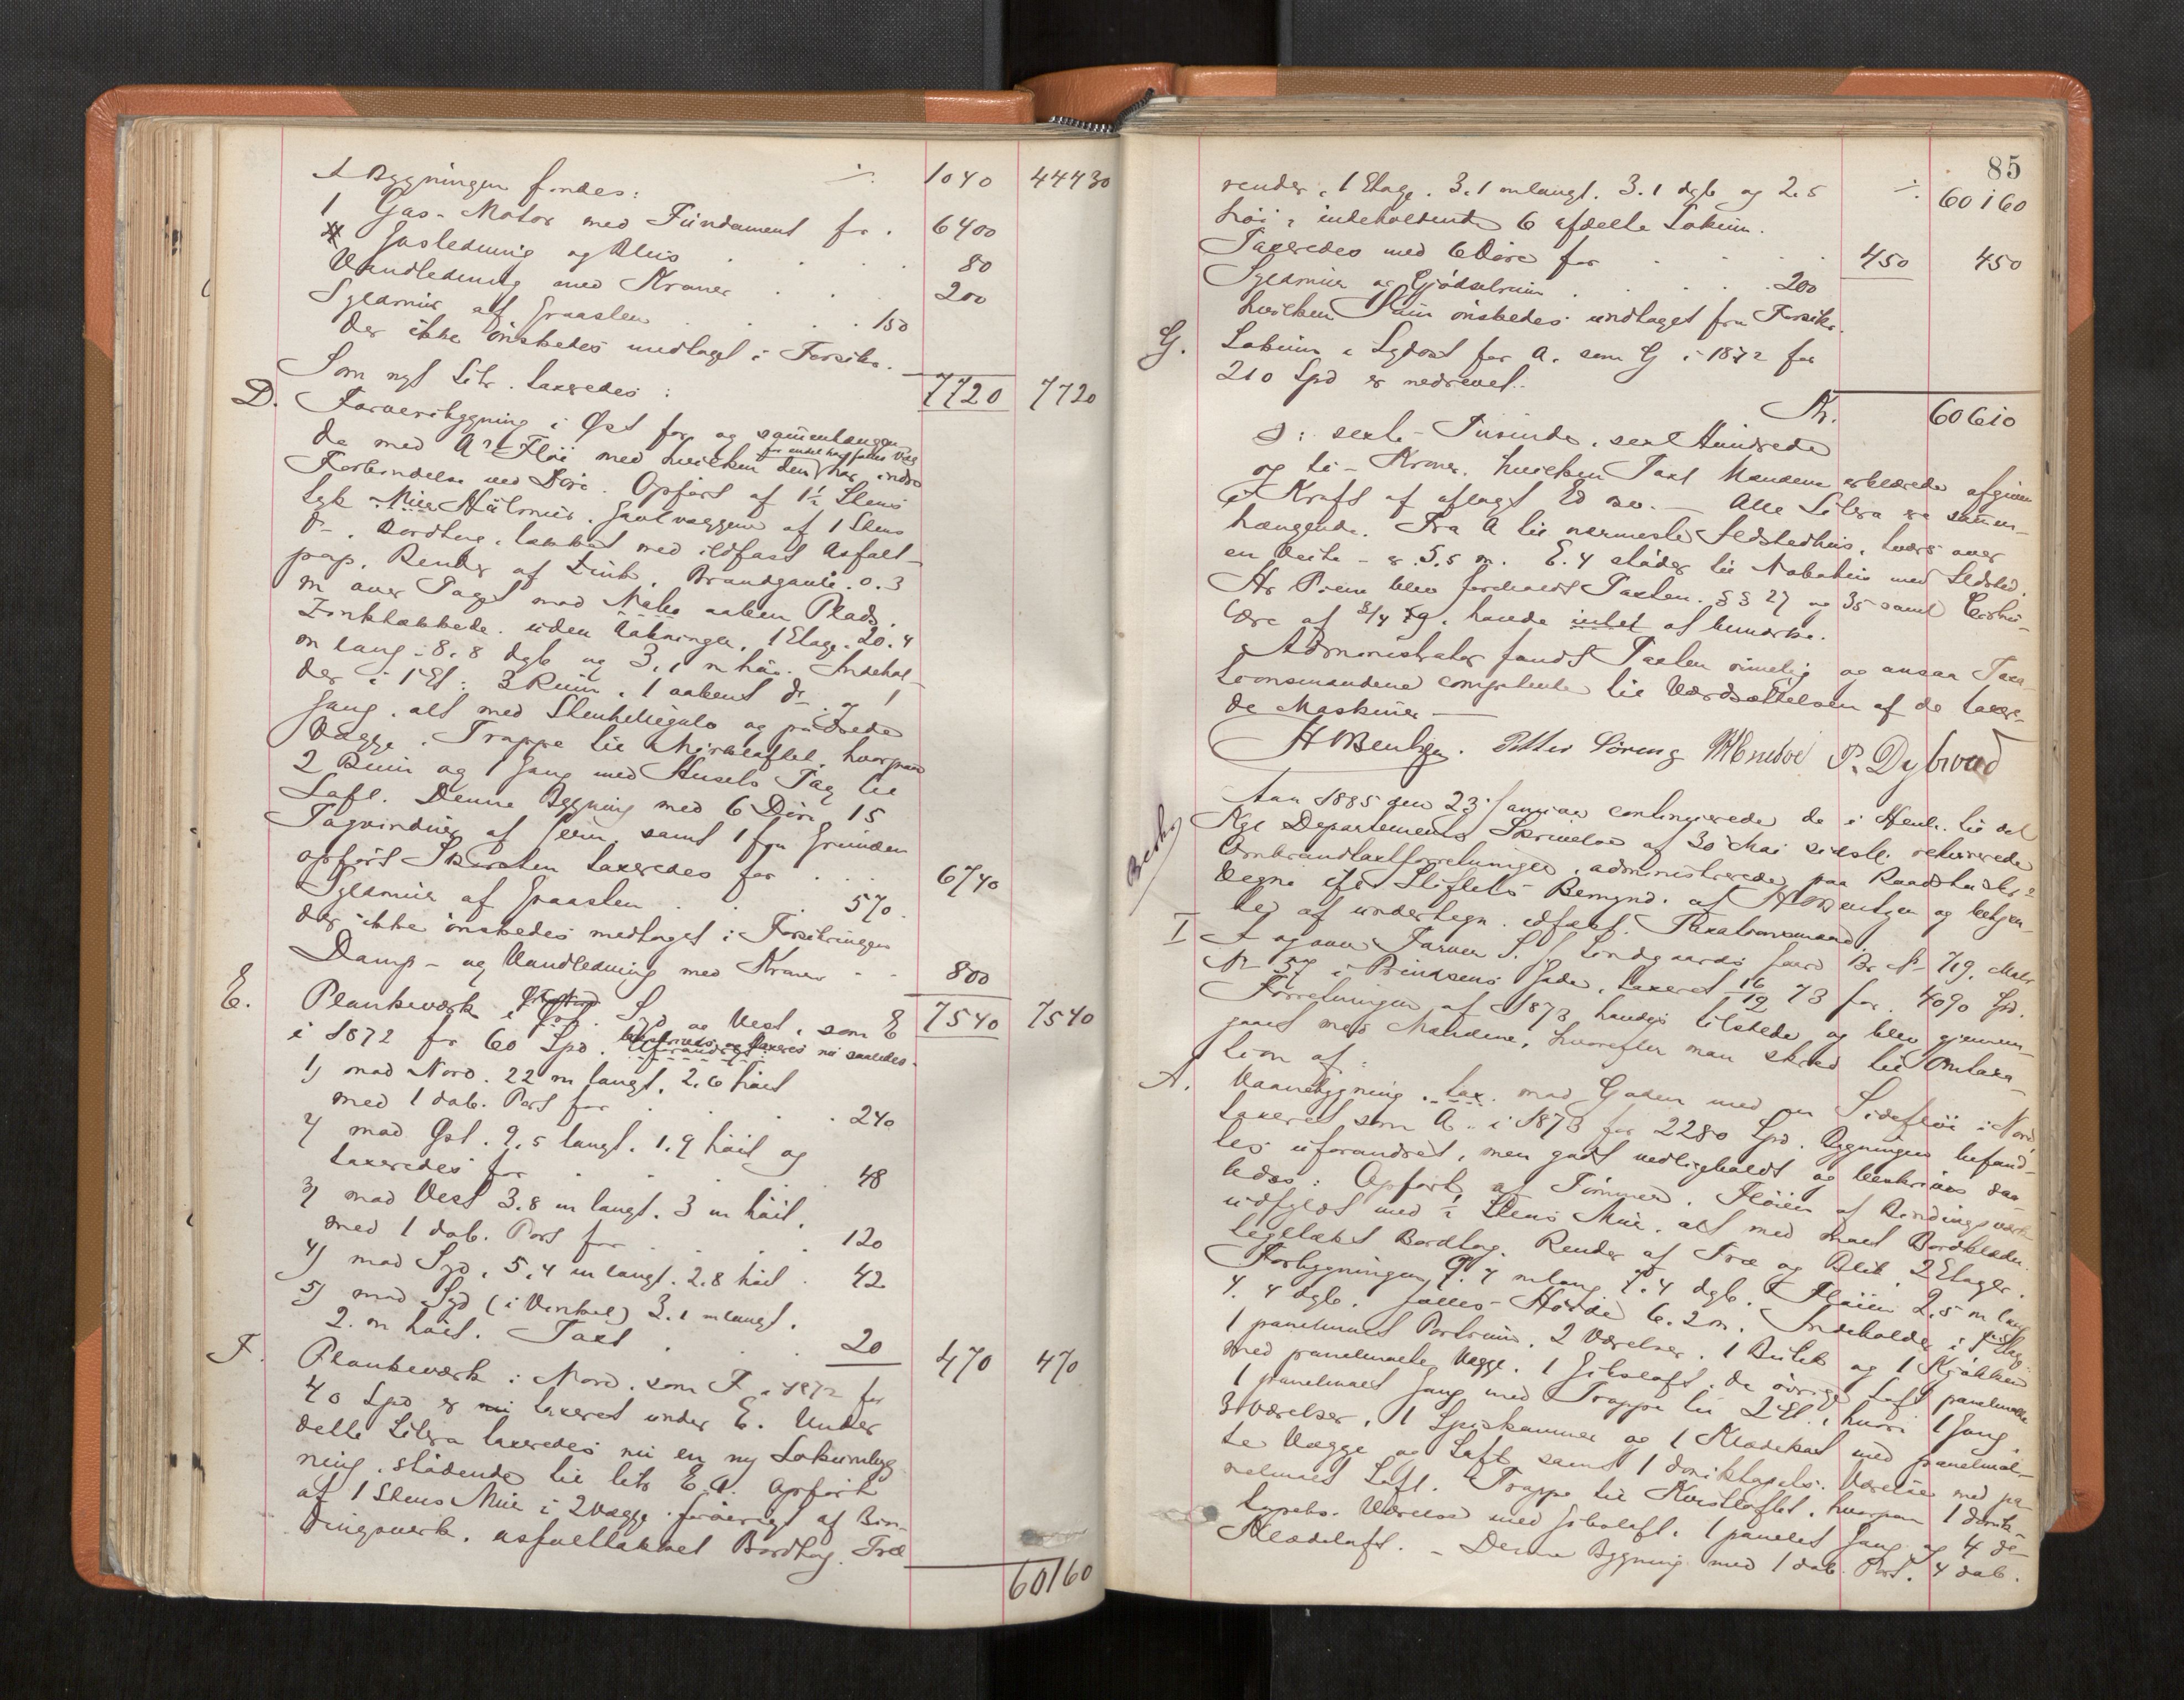 I Bygningen fandes: ⁒ 1040 44430
1 Gas-Motor med Fundament for. 6400
Gasledning og Blus . . . 80
Vandledning med Kraner . . 200
Syldmur af Graasten . . . . 150
der ikke önskedes medtaget i Forsikr.
7720 7720
Som nyt Litr. taxeredes:
D. Farveribygning i Öst for og sammenhængen-
de med A's Flöi med hvilken den har indre
for enkel halvstens Væg
Forbindelse ved Döre. Opfört af 1½ Stens
tyk Muur Hülmur. Gavlvæggene af 1 Stens
do. Bordtag, tækket med ildfast Asfalt-
pap. Render af Zink. Brandgavle 0.3
m over Taget mod Nabo aaben Plads.
Zinktækkede uden Aabninger. 1 Etage. 20.4
m lang. 8.8 dyb og 3.1 m höi. Indehol-
der i 1 Et: 3 Rum, 1 aabent do. og 1
Gang, alt med Stenhellegulv og pudsede
Vægge. Trappe til Mörkeloftet, hvorpaa
2 Rum og 1 Gang med Husets Tag til
Loft. Denne Bygning med 6 Döre, 15
Tagvinduer af Jern samt 1 fra Grunden
opfört Skorsten taxeredes for . . 6740
Syldmur af Graasten . . . 570.
der ikke önskedes medtaget i Forsikringen
Damp- og Vandledning med Kraner - - 800
7540 7540
E. Plankeværk i Syd og Vest, som E
i 1872 for 60 Spd. beskrives og taxeres nu saaledes.
1) mod Nord. 22 m langt. 2.6 höit
med 1 dob. Port for . . . . 240
2) mod Öst. 9.5 langt. 1.9 höit og
taxeredes for . . . . 48
3) mod Vest 3.8 m langt. 3 m höit,
med 1 dob. Port for . . . . 120
4) mod Syd. 5,4 m langt. 2.8 höit . 42
5) mod Syd (i Vinkel) 3.1 m langt.
2. m höit. Taxt . . . 20
470 470
F. Plankeværk i Nord, som F i 1872 for
40 Spd er nu taxeret under E. Under
dette Litra taxeredes nu en ny Lokumbyg-
ning, stödende til litr E. 1. Opfört
af 1 Stens Mur i 2 Vægge, forövrigt af Bin-
dingsverk, asfalttækket Bordtag. Træ
60160
85
render, 1 Etage. 3.1 m langt. 3.1 dyb og 2.5 ⁒ 60160
höi, indeholdende 6 afdelte Lokum.
Taxeredes med 6 Döre for . . . . 450 450
Syldmur og Gjödselrum . . . . 200
hvilken Sum önskedes undtaget fra Forsikr.
G. Lokum i Sydost for A. som G i 1872 for
210 Spd er nedrevet.
Kr. 60610
ɔ: sexti-Tusinde, sex Hundrede
og ti-Kroner. hvilken Taxt Mændene erklærede afgiven
i Kraft af aflagt Ed - Alle Litra er sammen-
hængende. Fra A til nærmeste Ildstedhus, tvers over
en Veite - er 5,5 m. E. 4 stöder til Nabohus med Ildsted.
Hr Piene blev foreholdt Taxten. §§ 27 og 35 samt Cirku-
lære af 3/4 79. havde intet at bemærke.
Administrator fandt Taxten rimelig og ansaa Taxa-
tionsmændene competente til Værdsættelsen af de taxere-
de Maskiner —
H Bentzen. Petter Löring P. Dybvad
Aar 1885 den 23. Januar continuerede de i Henh. til det
Kgl Departements Skrivelse af 30 Mai sidstl. rekvirerede
Ombrandtaxtforretninger, administrerede paa Raadstueskr.s
Vegne efter Stiftets Bemynd. af H Bentzen og betjen-
tes af undertegn. edfæst. Taxationsmænd.
I I og over Farver S. Lindgaards Gaard Br. No 719. Matr
No 57 i Prindsens Gade, taxeret 16/12 73 for 4090 Spd.
Forretningen af 1873 havdes tilstede og blev gjennem-
gaaet med Mændene, hvorefter man skred til Omtaxa-
tion af:
A. Vaanebygning, tax. mod Gaden med en Sideflöi i Nord,
taxeret som A. i 1873 for 2280 Spd. Bygningen befand-
tes uforandret, men godt vedligeholdt og beskrives saa-
ledes: Opfört af Tömmer. Flöien af Bindingsverk
udfyldt med ½ Stens Mur, alt med malt Bordklædn.
Tegltækt Bordtag. Render af Træ og Blik. 2 Etager.
Forbygningen 9.4 m lang 7.4 dyb. Flöien 2.5 m lang
4.4 dyb. Fælles-Höide 6.2 m. Indeholder i 1ste Etag.
1 panelmalt Portrum. 2 Værelser. 1 Butik og 1 Kjökken
med panelmalte Vægge. 1 Gibsloft, de övrige Loft panelmalte
1 panelmalt Gang med Trappe til 2 Et. hvori 1 Gang,
3 Værelser, 1 Spiskammer og 1 Klædekot med panelmal-
te Vægge og Loft samt 1 dariktapets. Værelse med pa-
nelmalt Loft. Trappe til Kvistloftet, hvorpaa 1 darik-
tapets. Værelse med Gibsloft. 1 panelet Gang og 4 do-
Klædeloft. - Denne Bygning med 1 dob. Port. 4 dob.